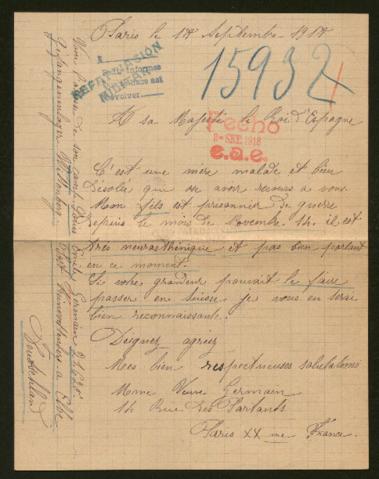 Paris le 1er Septembre 1918
REPATRIACION
15932
A sa Majesté le Roi d'Espagne
Fecho
SEE. 1918
e.a.e.
C'est une mère malade et bien
désolée qui ose avoir recours a vous
Mon fils est prisonnier de guerre
depuis le mois de Novembre 14. il est
très neurasthénique et pas bien portant
en ce moment.
Si votre grandeur pouvait le faire
passer en Suisse. je vous en serai
bien reconnaissante.
Daignez agréez
Mes bien respectueuses salutations
Mme Veuve Germain
14 Rue des Partants
Paris XX me France.
Germain
Gefangenenlager
a Elbe
Deutschland